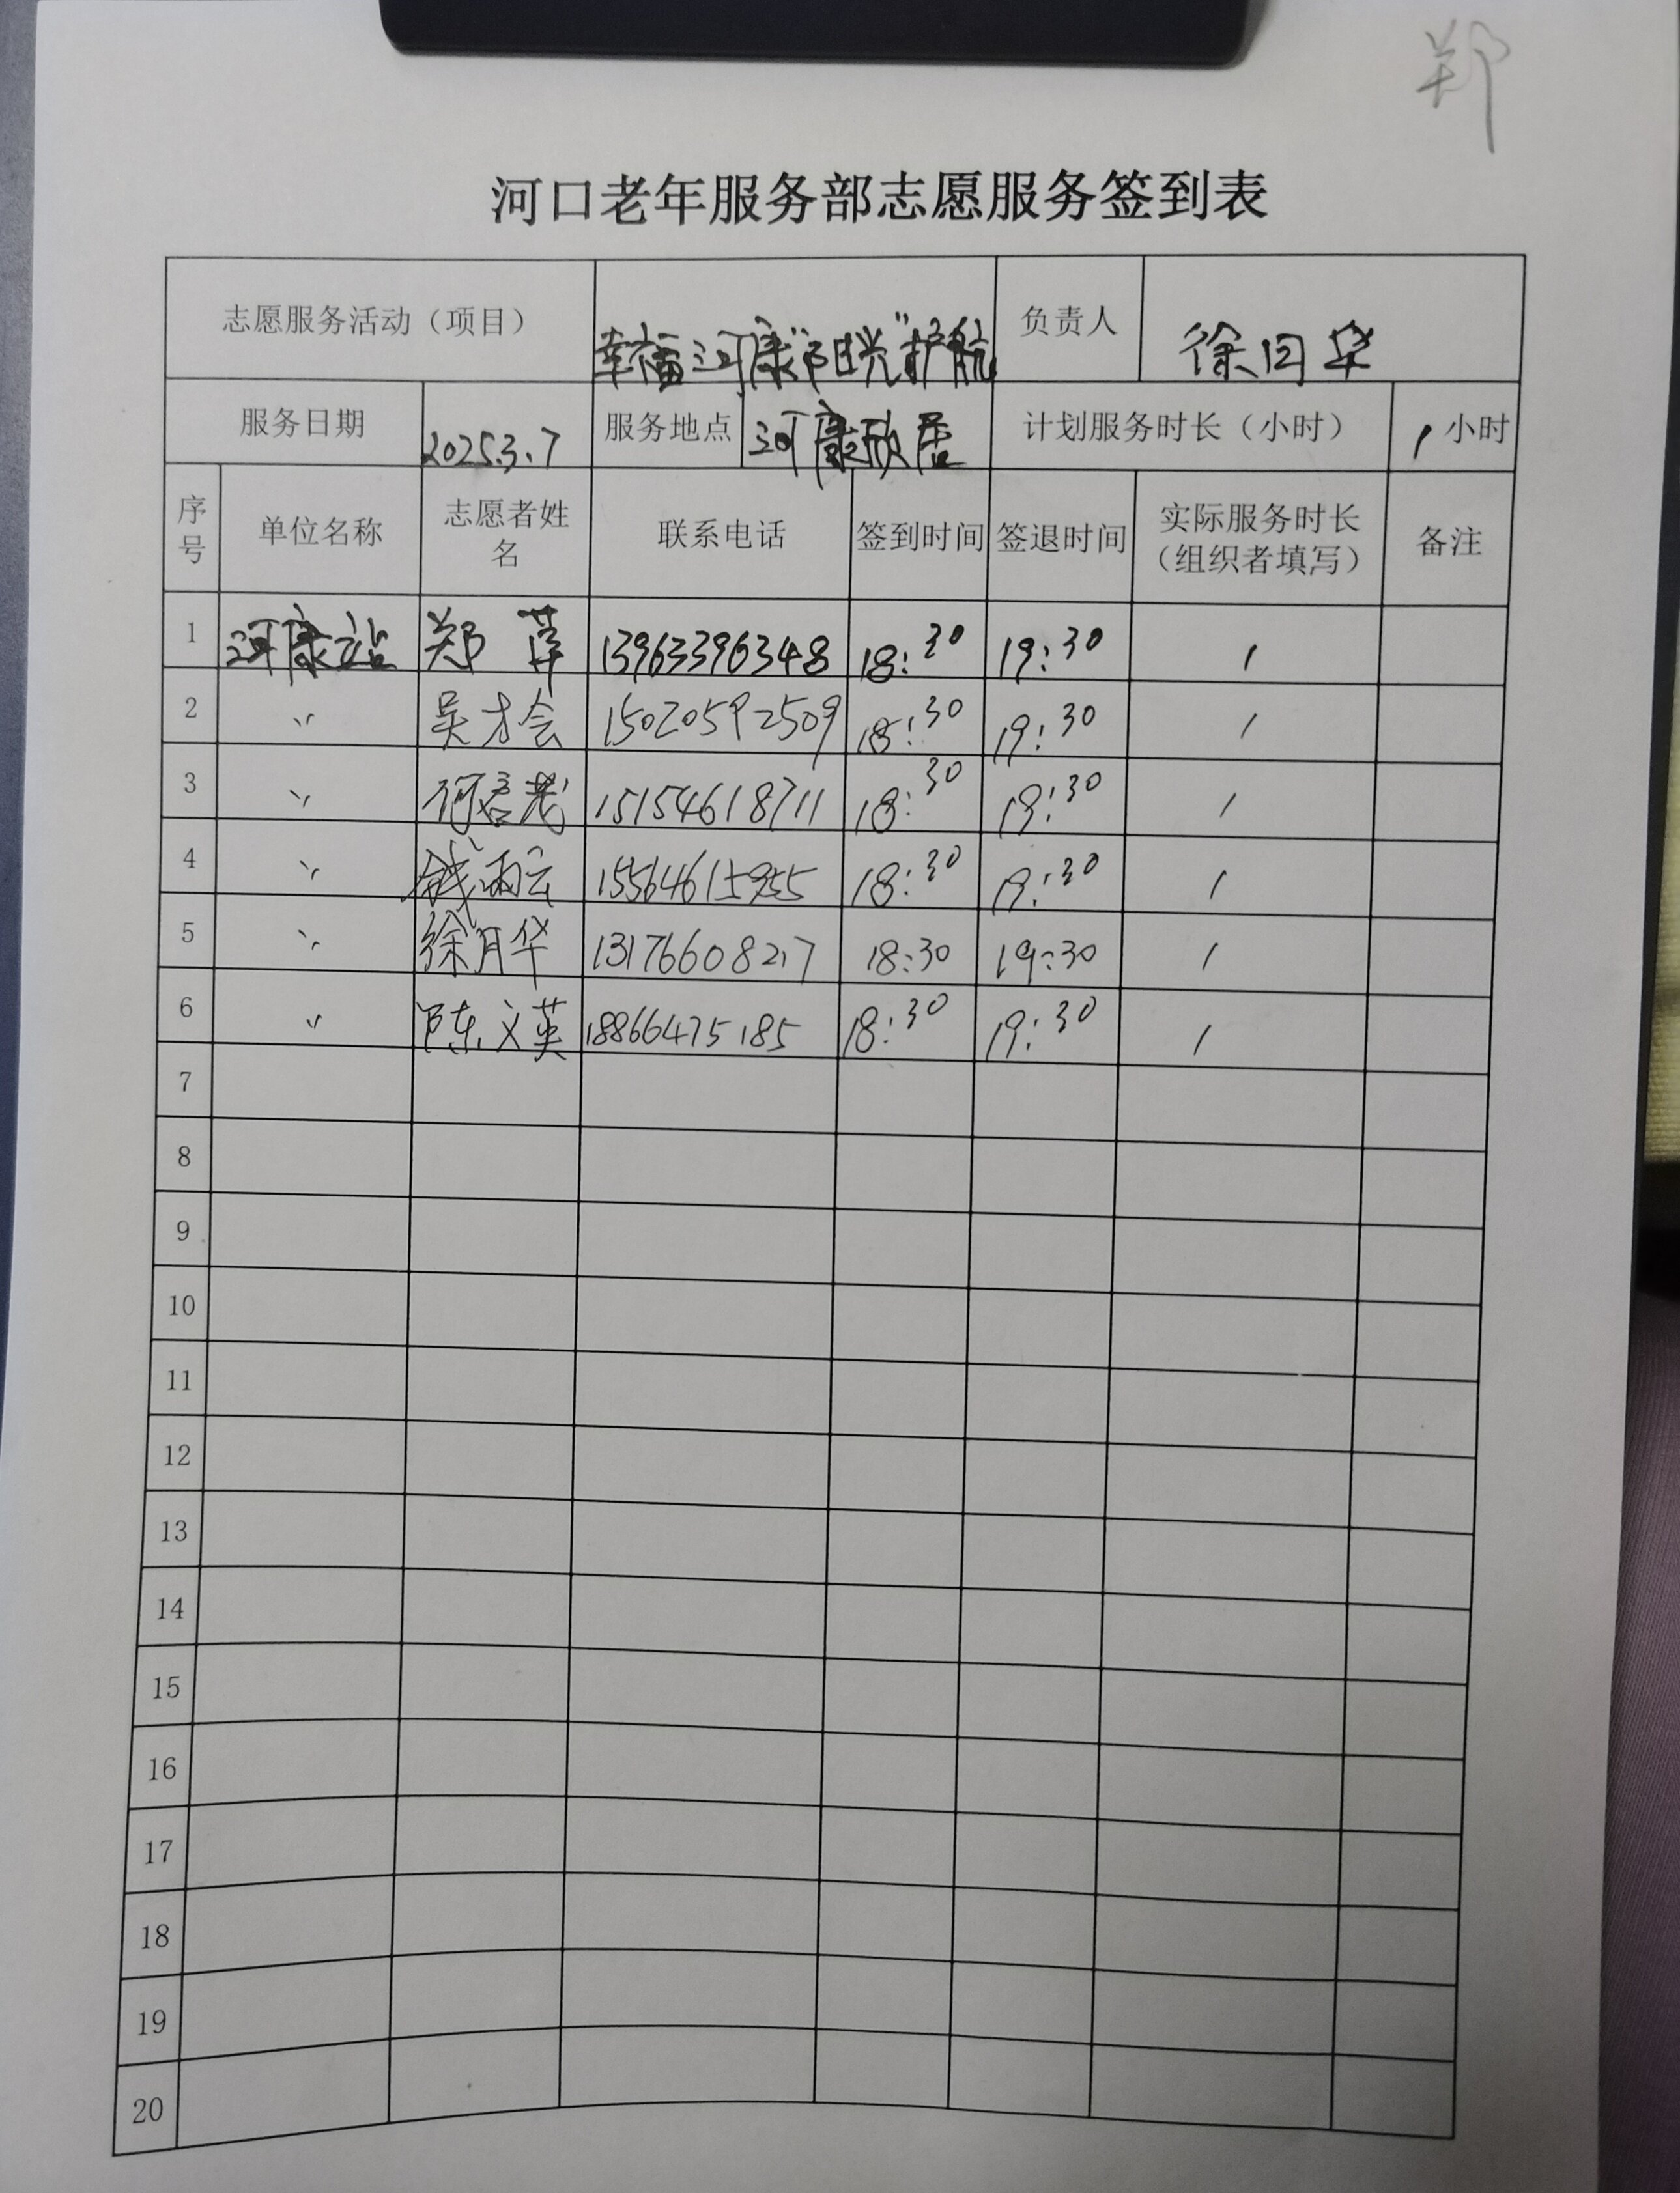 郑
河口老年服务部志愿服务签到表
志愿服务活动（项目） 幸福河康“阳光”护航 负责人 徐月华
服务日期 2025.3.7 服务地点 河康欣居 计划服务时长（小时） 1 小时
序号 单位名称 志愿者姓名 联系电话 签到时间 签退时间 实际服务时长（组织者填写） 备注
1 河康站 郑 萍 13963396348 18:30 19:30 1
2 〃 吴才会 15020592509 18:30 19:30 1
3 〃 何 15154618711 18:30 19:30 1
4 〃 钱雨云 15564615955 18:30 19:30 1
5 〃 徐月华 13176608217 18:30 19:30 1
6 〃 陈义英 18866475185 18:30 19:30 1
7
8
9
10
11
12
13
14
15
16
17
18
19
20